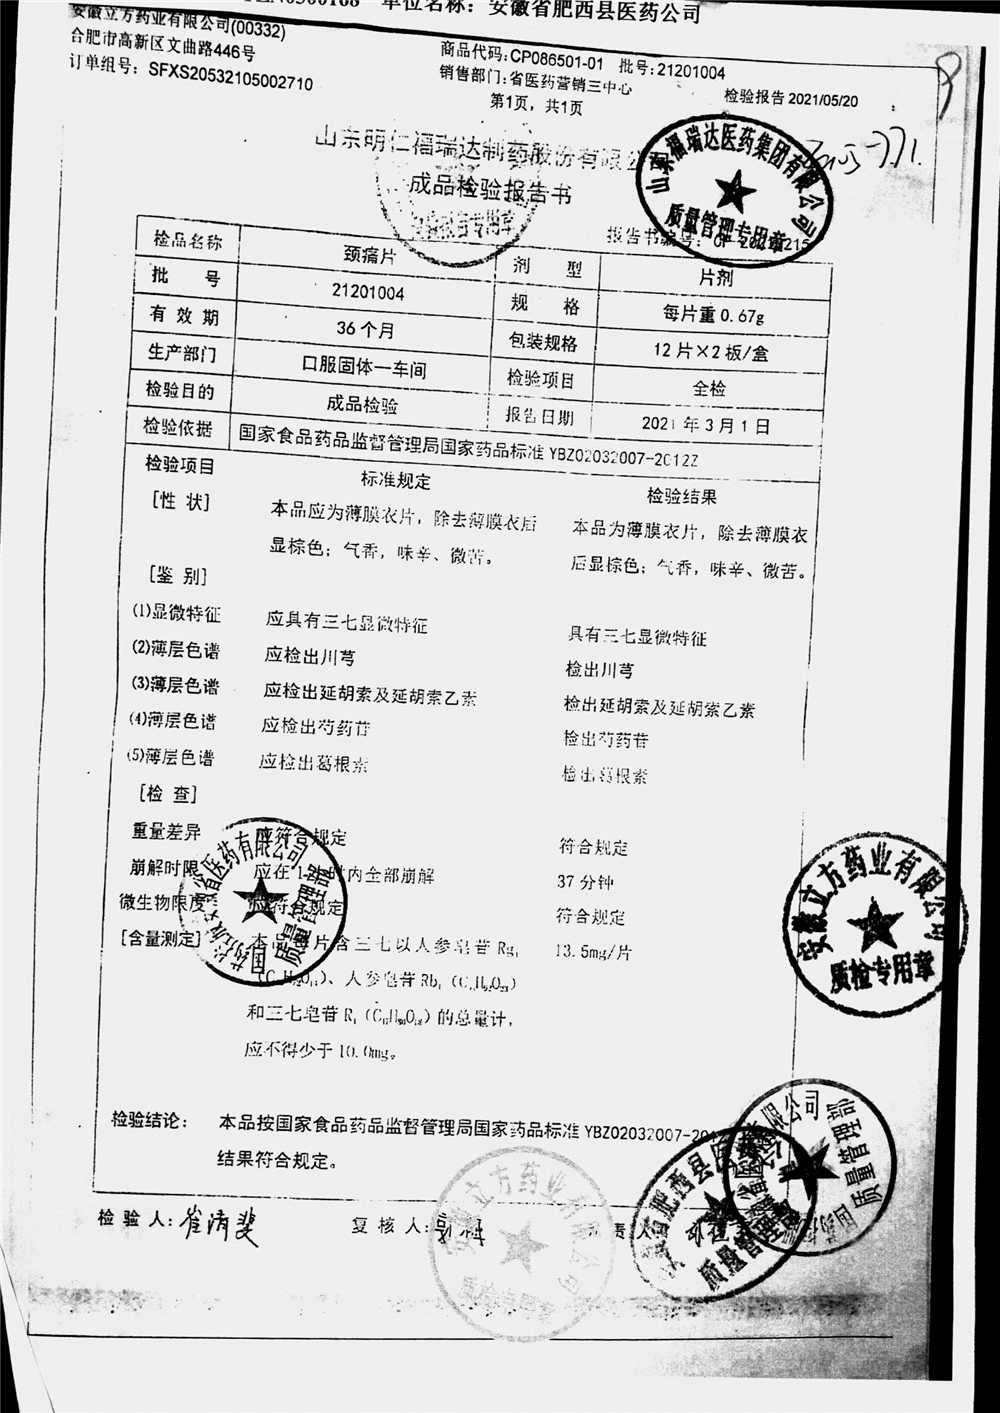 单位名称：安徽省肥西县医药公司
安徽立方药业有限公司(00332)
合肥市高新区文曲路446号
订单组号：SFXS20532105002710
商品代码：CP086501-01 批号：21201004
销售部门：省医药营销三中心
检验报告 2021/05/20
第1页，共1页
山东明仁福瑞达制药股份有限公
成品检验报告书
报告书编号：
检品名称 颈痛片 剂 型 片剂
批 号 21201004 规 格 每片重 0.67g
有 效 期 36 个月 包装规格 12 片×2 板/盒
生产部门 口服固体一车间 检验项目 全检
检验目的 成品检验 报告日期 2021 年 3 月 1 日
检验依据 国家食品药品监督管理局国家药品标准 YBZ02032007-2012Z
检验项目 标准规定 检验结果
[性 状] 本品应为薄膜衣片，除去薄膜衣后 本品为薄膜衣片，除去薄膜衣
显棕色；气香，味辛、微苦。 后显棕色；气香，味辛、微苦。
[鉴 别]
(1)显微特征 应具有三七显微特征 具有三七显微特征
(2)薄层色谱 应检出川芎 检出川芎
(3)薄层色谱 应检出延胡索及延胡索乙素 检出延胡索及延胡索乙素
(4)薄层色谱 应检出芍药苷 检出芍药苷
(5)薄层色谱 应检出葛根素 检出葛根素
[检 查]
重量差异 应符合规定 符合规定
崩解时限 应在1 时内全部崩解 37 分钟
微生物限度 应符合规定 符合规定
[含量测定] 本品每片含三七以人参皂苷 Rg₁ 13.5mg/片
、人参皂苷 Rb₁
和三七皂苷 R₁ 的总量计，
应不得少于 10.0mg。
检验结论： 本品按国家食品药品监督管理局国家药品标准 YBZ02032007-201
结果符合规定。
检 验 人： 崔清斐 复 核 人： 责 人
山东福瑞达医药集团有限公司
质量管理专用章
检验报告专用章
省医药有限公司
质量管理部
安徽立方药业有限公司
质检专用章
安徽立方药业有限公司
质检专用章
安徽省肥西县医药公司
质量管理部
质量管理部